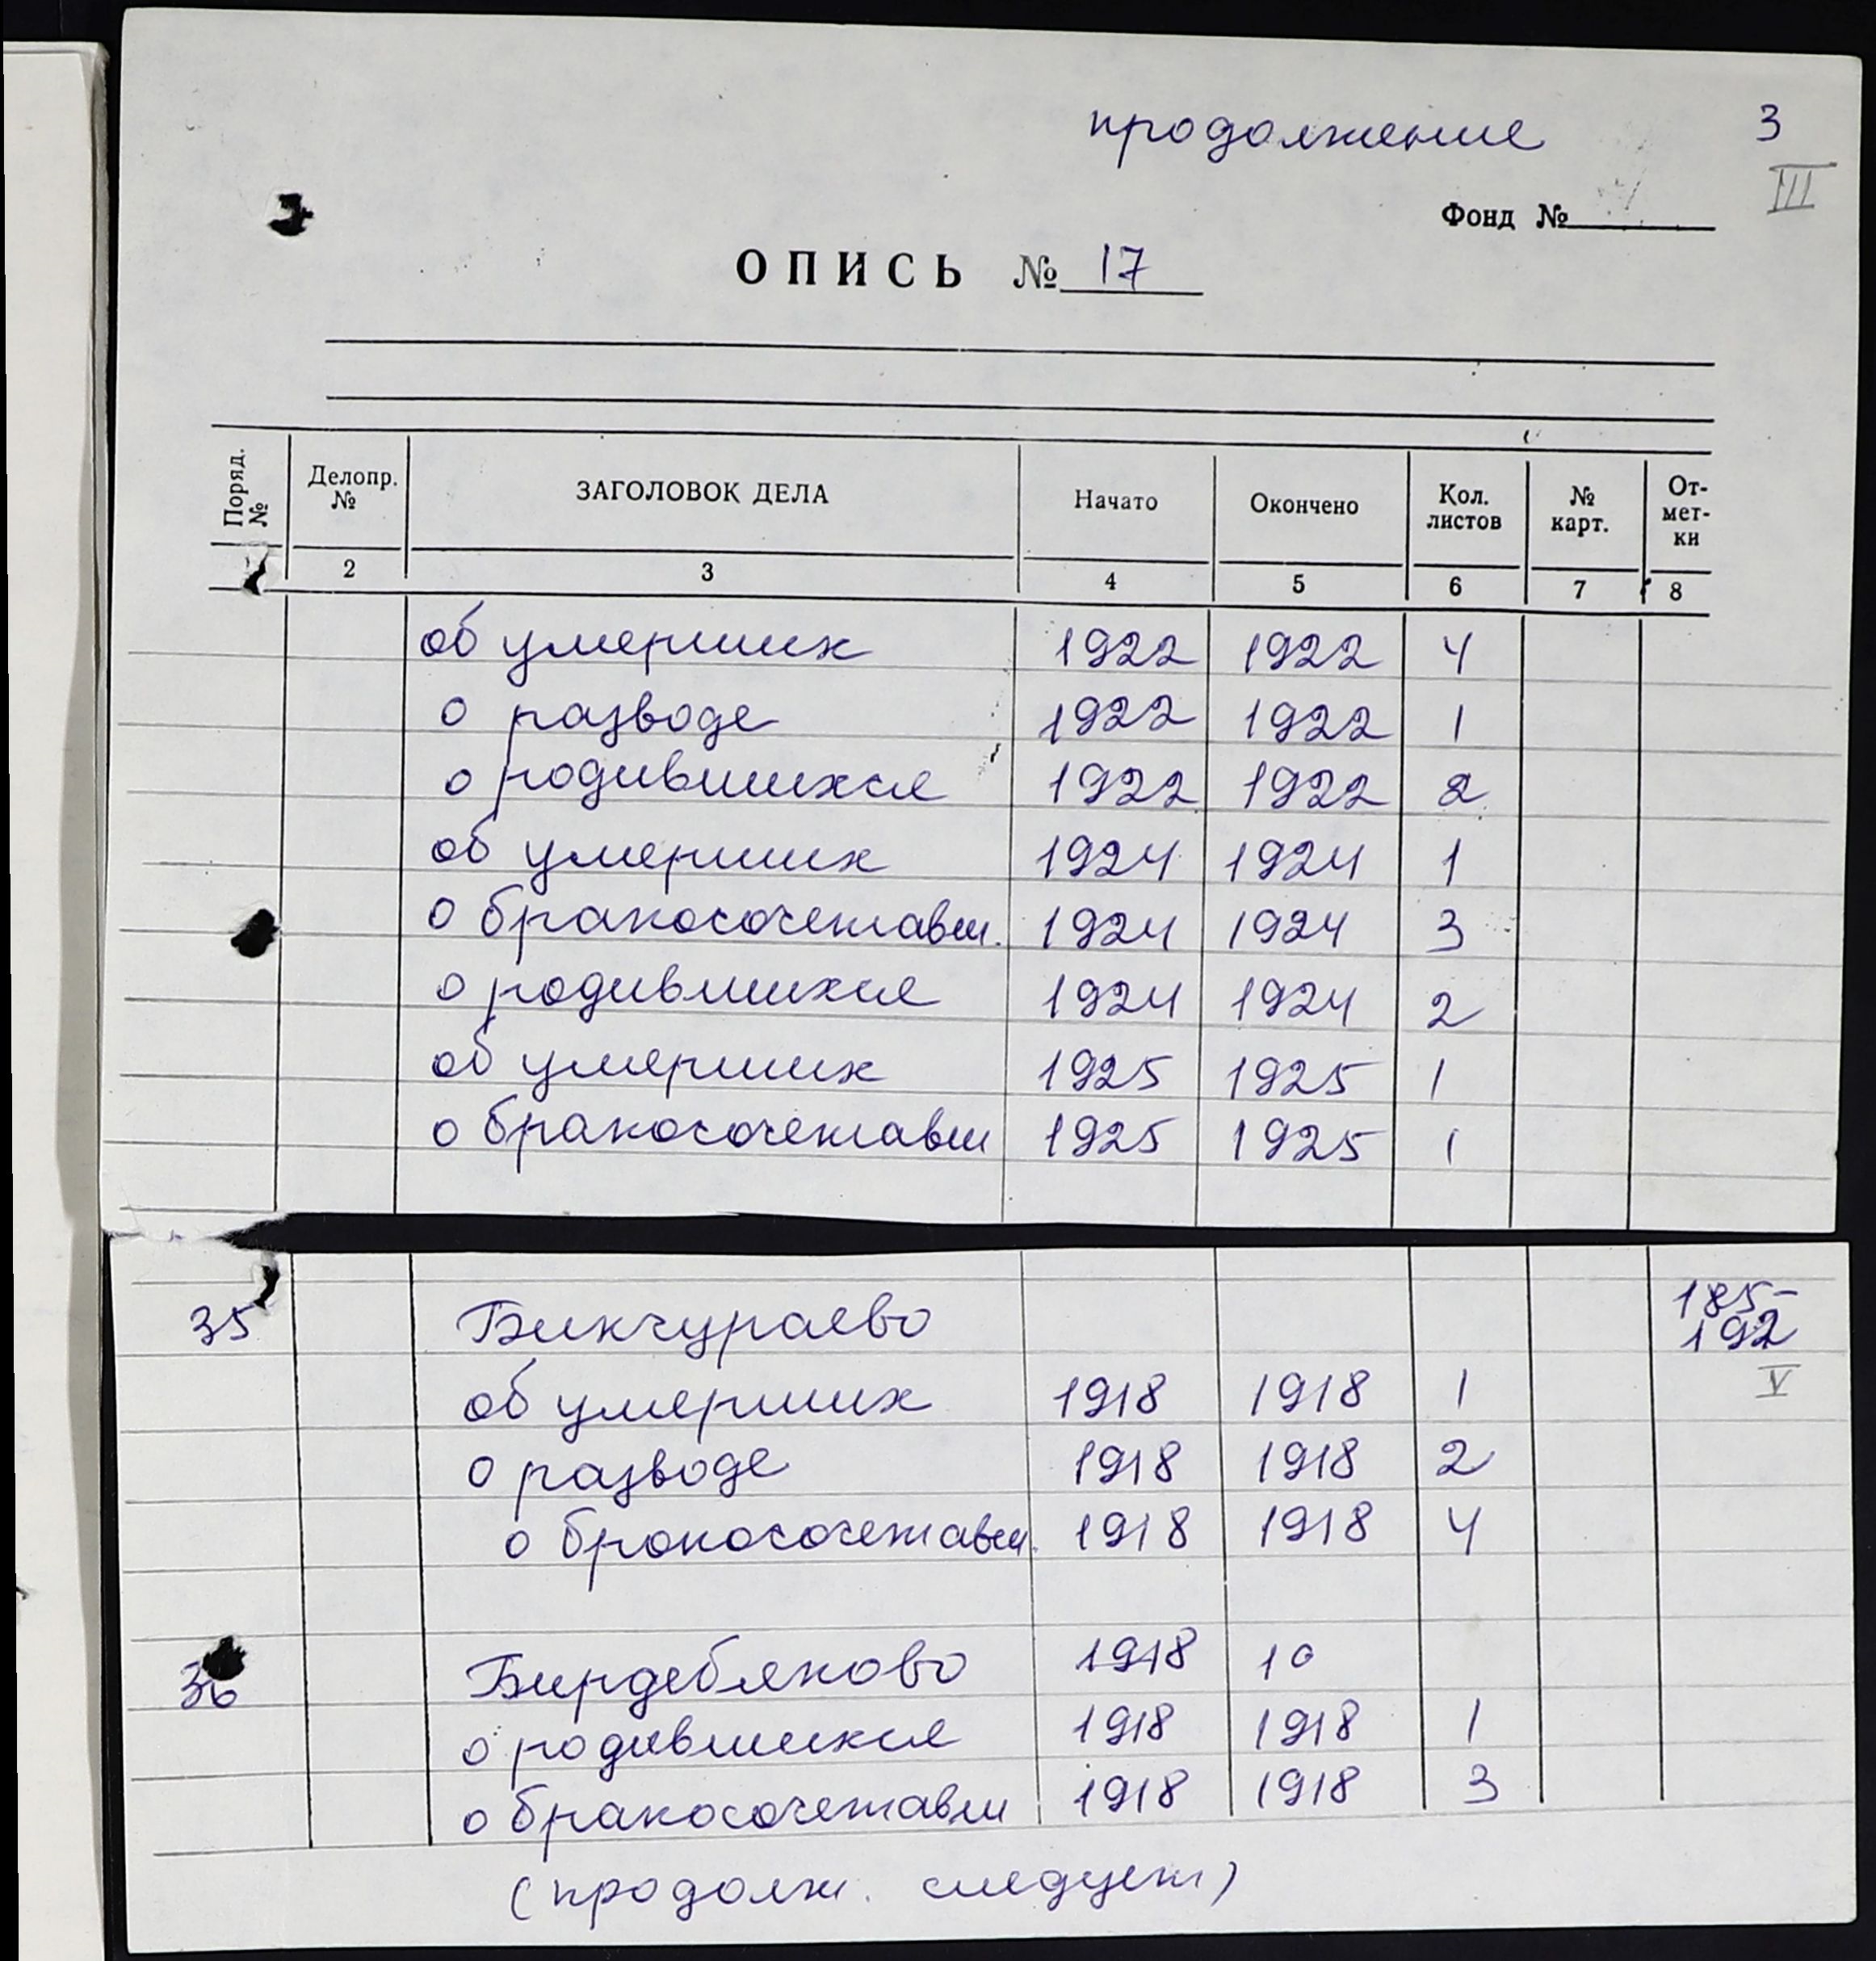 продолжение 3
III
Фонд №
ОПИСЬ № 17
Поряд. № Делопр. № ЗАГОЛОВОК ДЕЛА Начато Окончено Кол. листов № карт. От-мет-ки
2 3 4 5 6 7 8
об умерших 1922 1922 4
о разводе 1922 1922 1
о родившихся 1922 1922 2
об умерших 1924 1924 1
о бракосочетавш. 1924 1924 3
о родившихся 1924 1924 2
об умерших 1925 1925 1
о бракосочетавш 1925 1925 1
35 Бикчураево 185-
192
об умерших 1918 1918 1 V
о разводе 1918 1918 2
о бракосочетавш. 1918 1918 4
36 Бирдебяково 1918 10
о родившихся 1918 1918 1
о бракосочетавш 1918 1918 3
(продолж. следует)